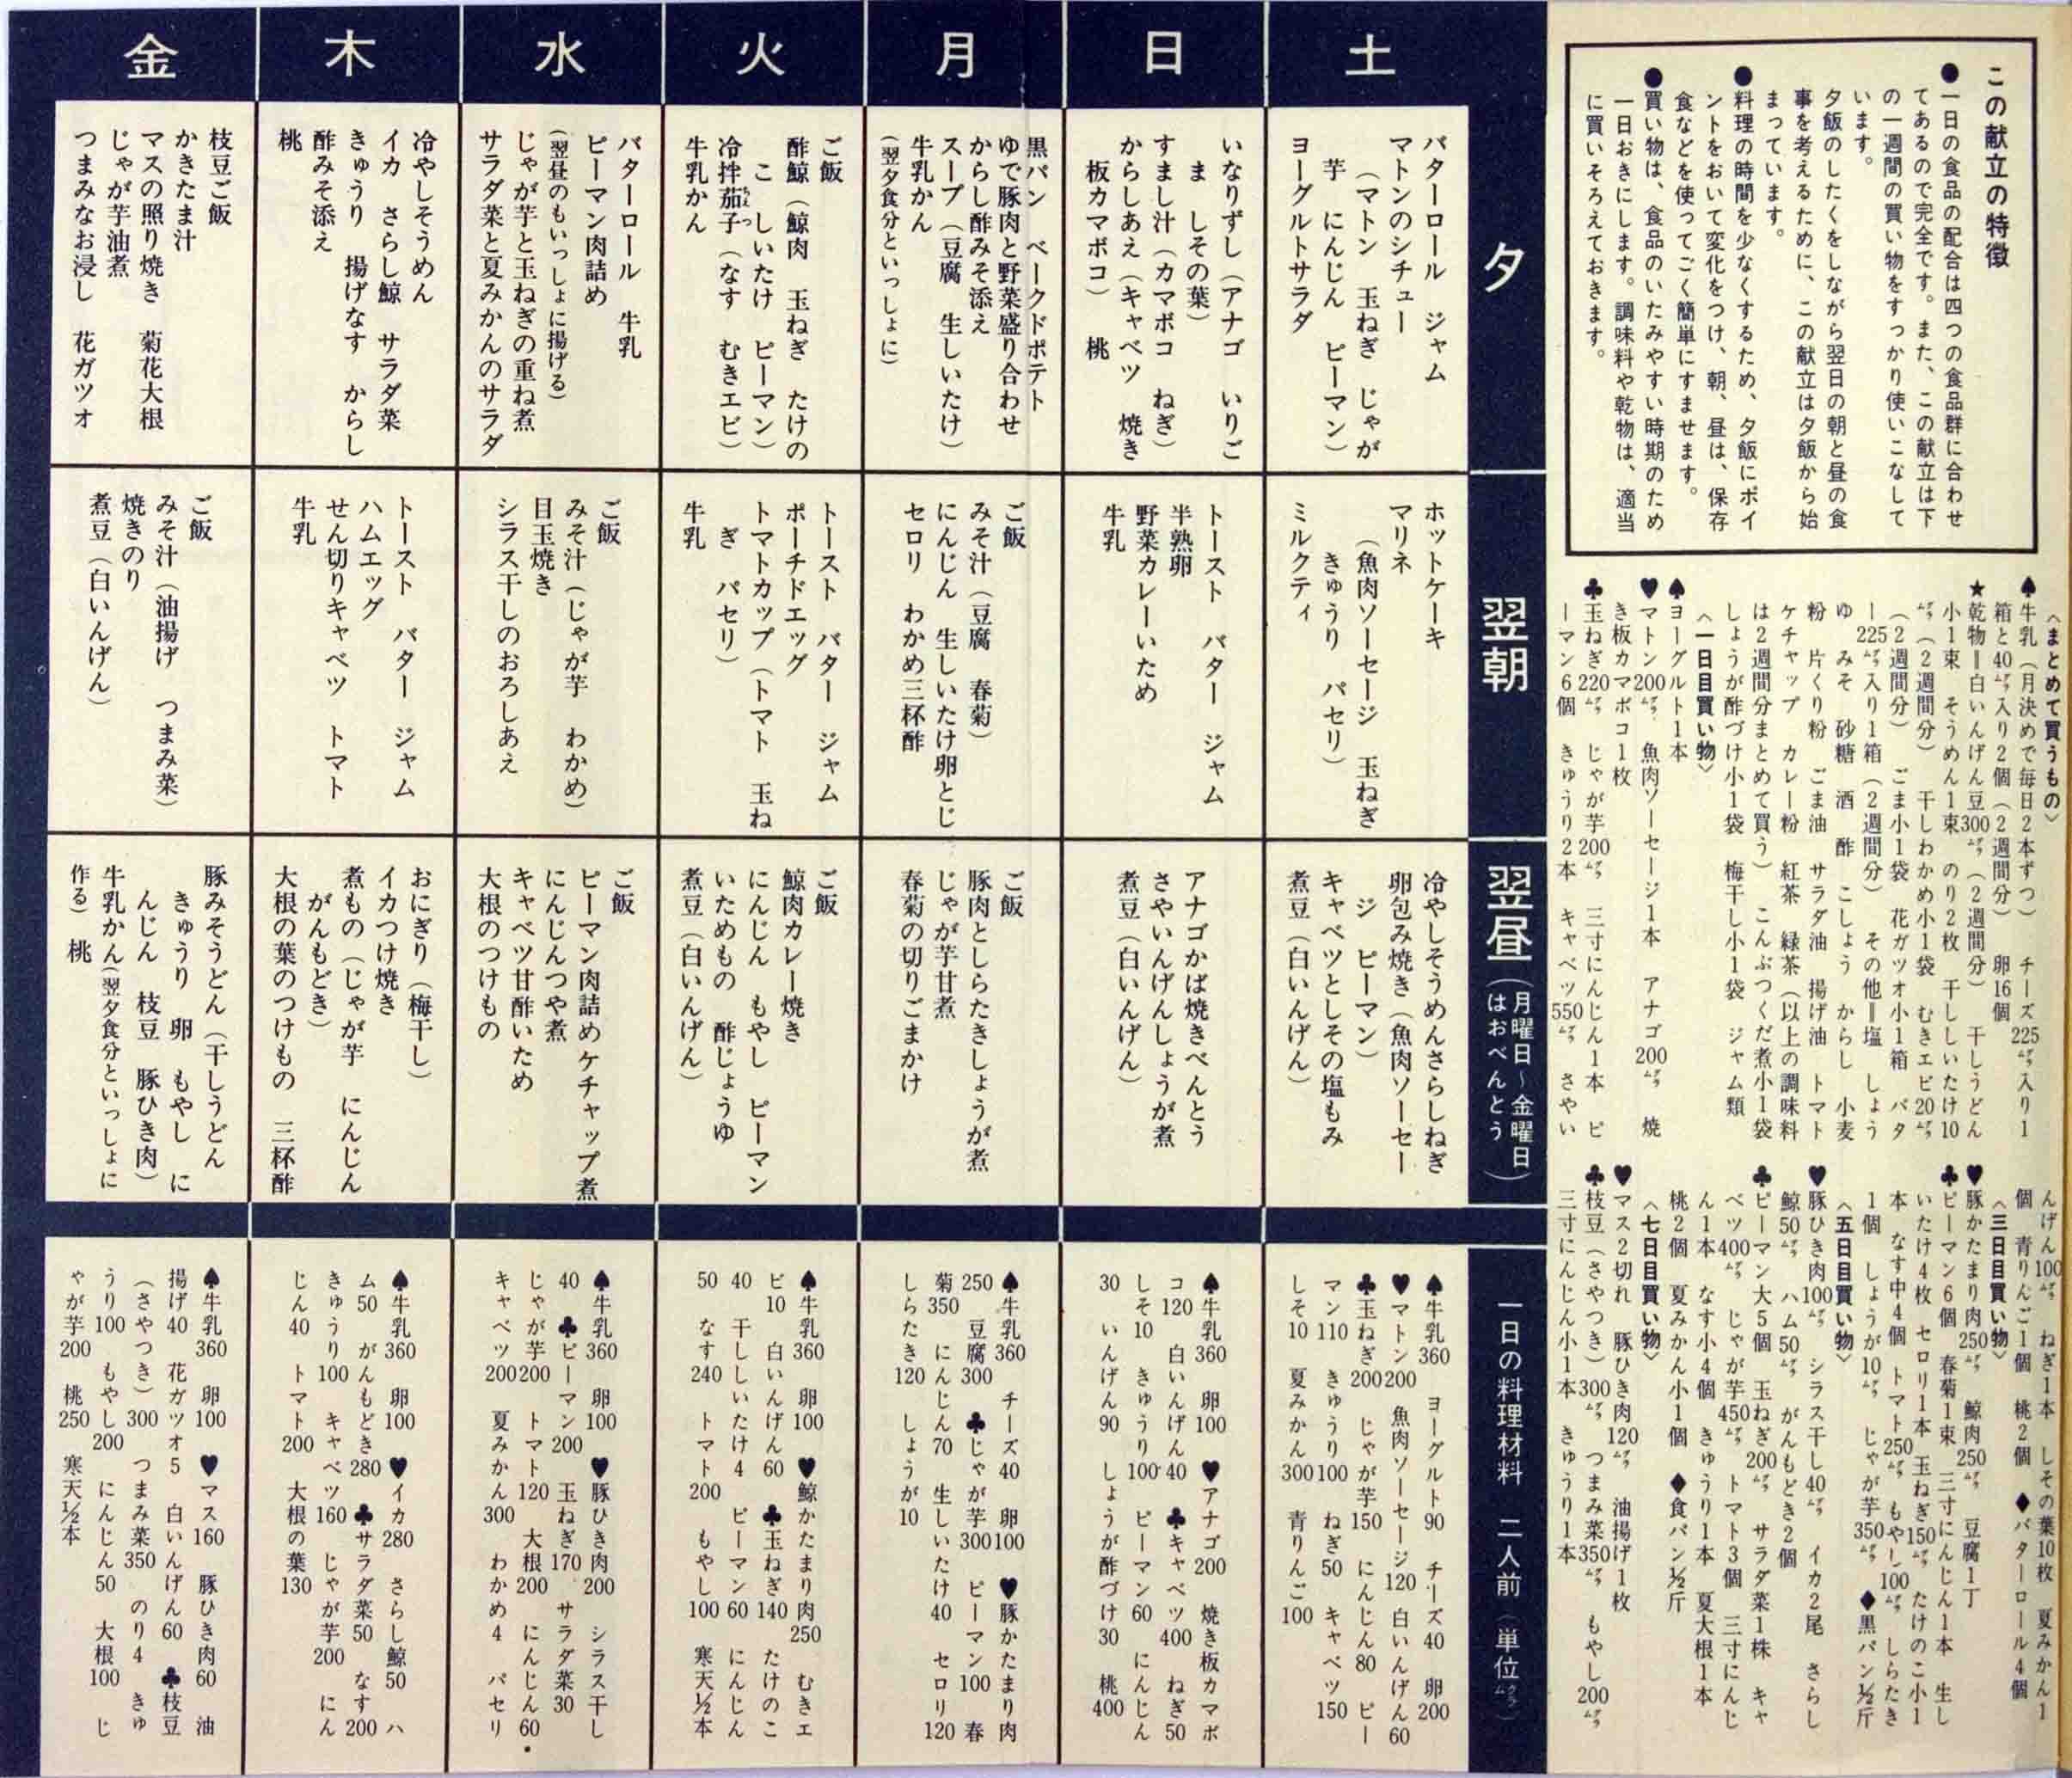 この献立の特徴
●一日の食品の配合は四つの食品群に合わせ
てあるので完全です。また、この献立は下
の一週間の買い物をすっかり使いこなして
います。
夕飯のしたくをしながら翌日の朝と昼の食
事を考えるために、この献立は夕飯から始
まっています。
●料理の時間を少なくするため、夕飯にポイ
ントをおいて変化をつけ、朝、昼は、保存
食などを使ってごく簡単にすませます。
●買い物は、食品のいたみやすい時期のため
一日おきにします。調味料や乾物は、適当
に買いそろえておきます。
〈まとめて買うもの〉
♠牛乳（月決めで毎日2本ずつ） チーズ225㌘入り1
箱と40㌘入り2個（2週間分） 卵16個
★乾物＝白いんげん豆300㌘（2週間分） 干しうどん
小1束 そうめん1束 のり2枚 干ししいたけ10
㌘（2週間分） 干しわかめ小1袋 むきエビ20㌘
（2週間分） ごま小1袋 花ガツオ小1箱 バタ
ー225㌘入り1箱（2週間分） その他＝塩 しょう
ゆ みそ 砂糖 酒 酢 こしょう からし 小麦
粉 片くり粉 ごま油 サラダ油 揚げ油 トマト
ケチャップ カレー粉 紅茶 緑茶（以上の調味料
は2週間分まとめて買う） こんぶつくだ煮小1袋
しょうが酢づけ小1袋 梅干し小1袋 ジャム類
〈一日目買い物〉
♠ヨーグルト1本
♥マトン200㌘ 魚肉ソーセージ1本 アナゴ200㌘ 焼
き板カマボコ1枚
♣玉ねぎ220㌘ じゃが芋200㌘ 三寸にんじん1本 ピ
ーマン6個 きゅうり2本 キャベツ550㌘ さやい
んげん100㌘ ねぎ1本 しその葉10枚 夏みかん1
個 青りんご1個 桃2個 ♦バターロール4個
〈三日目買い物〉
♥豚かたまり肉250㌘ 鯨肉250㌘ 豆腐1丁
♣ピーマン6個 春菊1束 三寸にんじん1本 生し
いたけ4枚 セロリ1本 玉ねぎ150㌘ たけのこ小1
本 なす中4個 トマト250㌘ もやし100㌘ しらたき
1個 しょうが10㌘ じゃが芋350㌘ ♦黒パン½斤
〈五日目買い物〉
♥豚ひき肉100㌘ シラス干し40㌘ イカ2尾 さらし
鯨50㌘ ハム50㌘ がんもどき2個
♣ピーマン大5個 玉ねぎ200㌘ サラダ菜1株 キャ
ベツ400㌘ じゃが芋450㌘ トマト3個 三寸にんじ
ん1本 なす小4個 きゅうり1本 夏大根1本
桃2個 夏みかん小1個 ♦食パン½斤
〈七日目買い物〉
♥マス2切れ 豚ひき肉120㌘ 油揚げ1枚
♣枝豆（さやつき）300㌘ つまみ菜350㌘ もやし200㌘
三寸にんじん小1本 きゅうり1本
夕
翌朝
翌昼（月曜日〜金曜日はおべんとう）
一日の料理材料 二人前（単位㌘）
土
バターロール ジャム
マトンのシチュー
（マトン 玉ねぎ じゃが
芋 にんじん ピーマン）
ヨーグルトサラダ
ホットケーキ
マリネ
（魚肉ソーセージ 玉ねぎ
きゅうり パセリ）
ミルクティ
冷やしそうめんさらしねぎ
卵包み焼き（魚肉ソーセー
ジ ピーマン）
キャベツとしその塩もみ
煮豆（白いんげん）
♠牛乳360 ヨーグルト90 チーズ40 卵200
♥マトン200 魚肉ソーセージ120 白いんげん60
♣玉ねぎ200 じゃが芋150 にんじん80 ピー
マン110 きゅうり100 ねぎ50 キャベツ150
しそ10 夏みかん300 青りんご100
日
いなりずし（アナゴ いりご
ま しその葉）
すまし汁（カマボコ ねぎ）
からしあえ（キャベツ 焼き
板カマボコ） 桃
トースト バター ジャム
半熟卵
野菜カレーいため
牛乳
アナゴかば焼きべんとう
さやいんげんしょうが煮
煮豆（白いんげん）
♠牛乳360 卵100 ♥アナゴ200 焼き板カマボ
コ120 白いんげん40 ♣キャベツ400 ねぎ50
しそ10 きゅうり100 ピーマン60 にんじん
30 いんげん90 しょうが酢づけ30 桃400
月
黒パン ベークドポテト
ゆで豚肉と野菜盛り合わせ
からし酢みそ添え
スープ（豆腐 生しいたけ）
牛乳かん
（翌夕食分といっしょに）
ご飯
みそ汁（豆腐 春菊）
にんじん 生しいたけ卵とじ
セロリ わかめ三杯酢
ご飯
豚肉としらたきしょうが煮
じゃが芋甘煮
春菊の切りごまかけ
♠牛乳360 チーズ40 卵100 ♥豚かたまり肉
250 豆腐300 ♣じゃが芋300 ピーマン100 春
菊350 にんじん70 生しいたけ40 セロリ120
しらたき120 しょうが10
火
ご飯
酢鯨（鯨肉 玉ねぎ たけの
こ しいたけ ピーマン）
冷拌茄子（なす むきエビ）
牛乳かん
トースト バター ジャム
ポーチドエッグ
トマトカップ（トマト 玉ね
ぎ パセリ）
牛乳
ご飯
鯨肉カレー焼き
にんじん もやし ピーマン
いためもの 酢じょうゆ
煮豆（白いんげん）
♠牛乳360 卵100 ♥鯨かたまり肉250 むきエ
ビ10 白いんげん60 ♣玉ねぎ140 たけのこ
40 干ししいたけ4 ピーマン60 にんじん
50 なす240 トマト200 もやし100 寒天½本
水
バターロール 牛乳
ピーマン肉詰め
（翌昼のもいっしょに揚げる）
じゃが芋と玉ねぎの重ね煮
サラダ菜と夏みかんのサラダ
ご飯
みそ汁（じゃが芋 わかめ）
目玉焼き
シラス干しのおろしあえ
ご飯
ピーマン肉詰めケチャップ煮
にんじんつや煮
キャベツ甘酢いため
大根のつけもの
♠牛乳360 卵100 ♥豚ひき肉200 シラス干し
40 ♣ピーマン200 玉ねぎ170 サラダ菜30
じゃが芋200 トマト120 大根200 にんじん60
キャベツ200 夏みかん300 わかめ4 パセリ
木
冷やしそうめん
イカ さらし鯨 サラダ菜
きゅうり 揚げなす からし
酢みそ添え
桃
トースト バター ジャム
ハムエッグ
せん切りキャベツ トマト
牛乳
おにぎり（梅干し）
イカつけ焼き
煮もの（じゃが芋 にんじん
がんもどき）
大根の葉のつけもの 三杯酢
♠牛乳360 卵100 ♥イカ280 さらし鯨50 ハ
ム50 がんもどき280 ♣サラダ菜50 なす200
きゅうり100 キャベツ160 じゃが芋200 にん
じん40 トマト200 大根の葉130
金
枝豆ご飯
かきたま汁
マスの照り焼き 菊花大根
じゃが芋油煮
つまみなお浸し 花ガツオ
ご飯
みそ汁（油揚げ つまみ菜）
焼きのり
煮豆（白いんげん）
豚みそうどん（干しうどん
きゅうり 卵 もやし に
んじん 枝豆 豚ひき肉）
牛乳かん（翌夕食分といっしょに
作る） 桃
♠牛乳360 卵100 ♥マス160 豚ひき肉60 油
揚げ40 花ガツオ5 白いんげん60 ♣枝豆
（さやつき）300 つまみ菜350 のり4 きゅ
うり100 もやし200 にんじん50 大根100 じ
ゃが芋200 桃250 寒天½本